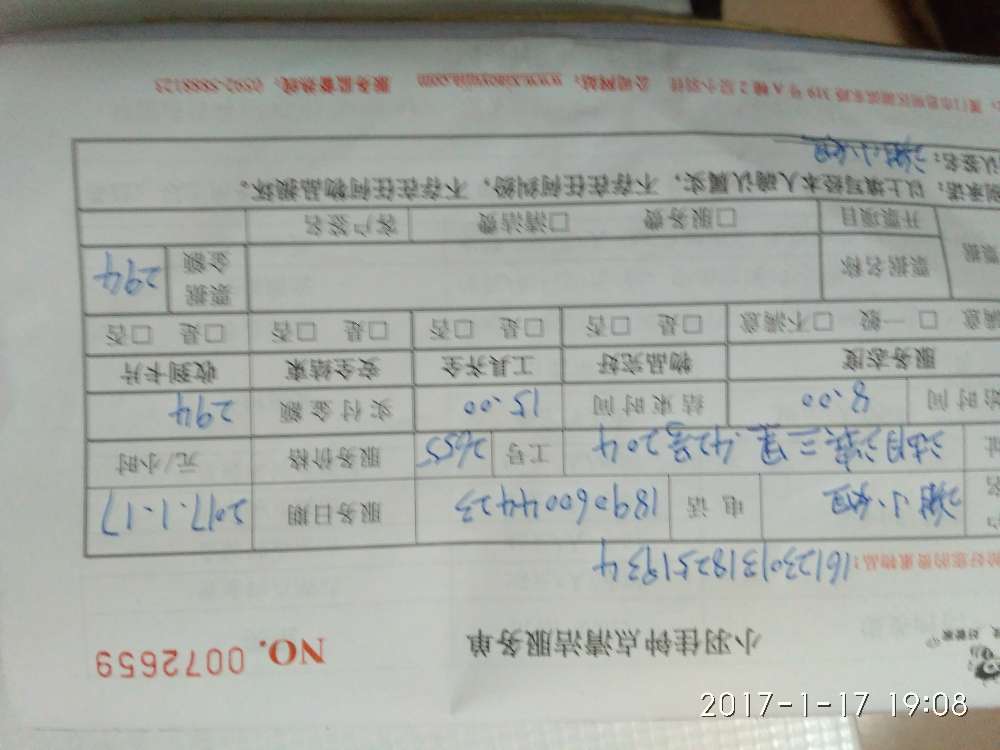 小羽佳钟点清洁服务单 NO. 0072659
管好您的贵重物品! 16123013182251934
名 谢小姐 电话 18906004423 服务日期 2017.1.17
址 湖滨三里.42号204 工号 2655 服务价格 元/小时
始时间 8.00 结束时间 15.00 实付金额 294
服务态度 物品完好 工具齐全 安全结束 收到卡片
满意 □ 一般 □不满意 □ 是 □ 否 □ 是 □ 否 □ 是 □ 否 □ 是 □ 否
票据 票据名称 票据金额 294
开票项目 □服务费 □清洁费 客户签名
则承诺: 以上填写经本人确认属实, 不存在任何纠纷, 不存在任何物品损坏。
认签名: 谢小姐
厦门市思明区湖滨东路 319 号 A 幢 2 层小羽佳 公司网站: www.xiaoyujia.com 服务监督热线: 0592-5888125
2017-1-17 19:08